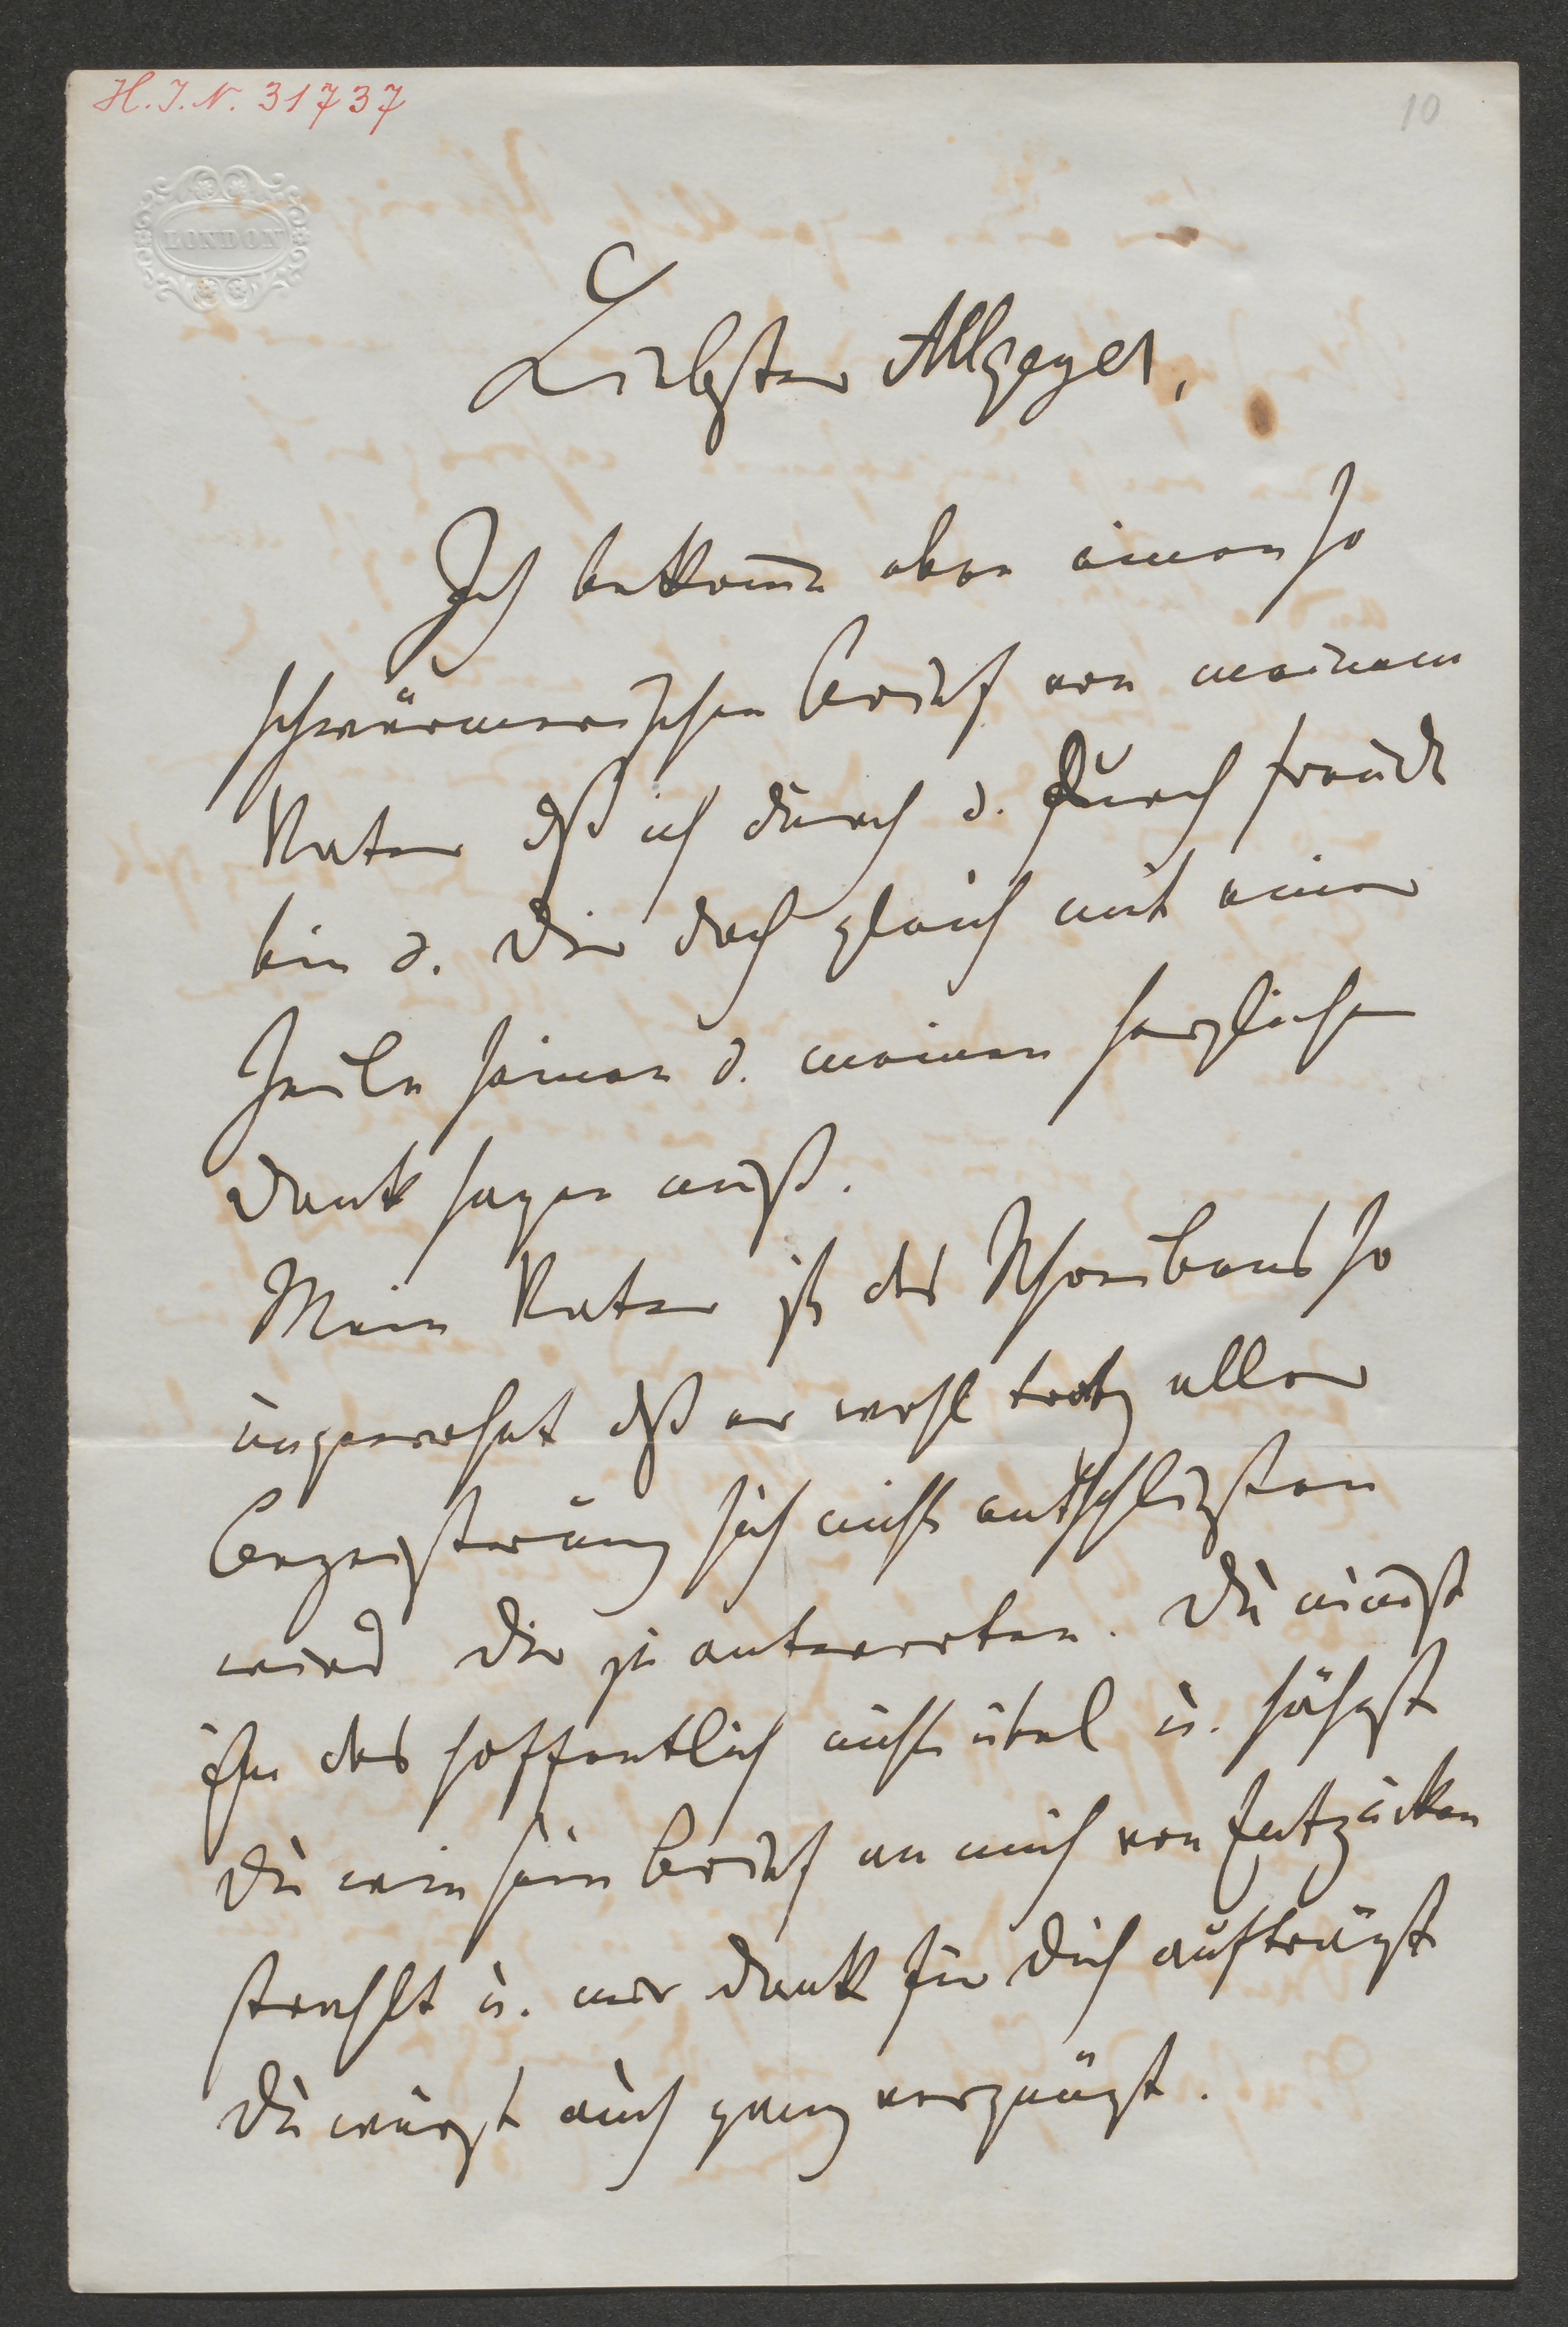 H.I.N. 31737
10
LONDON
Liebster Allgeyer,
Ich bekome eben einen so
schwärmerischen Brief von meinem
Vater dß ich durch u. durch Freude
bin u. Dir doch gleich mit einer
Zeile seinen u. meinen herzlichen
Dank sagen muß.
Mein Vater ist des Schreibens so
ungewohnt dß er wohl trotz aller
Begeisterung sich nicht entschließen
wird Dir zu antworten. Du nimst
ihm das hoffentlich nicht übel u. sähest
Du wie sein Brief an mich von Entzücken
strahlt u. mir Dank für Dich aufträgt
Du wärest auch ganz vergnügt.